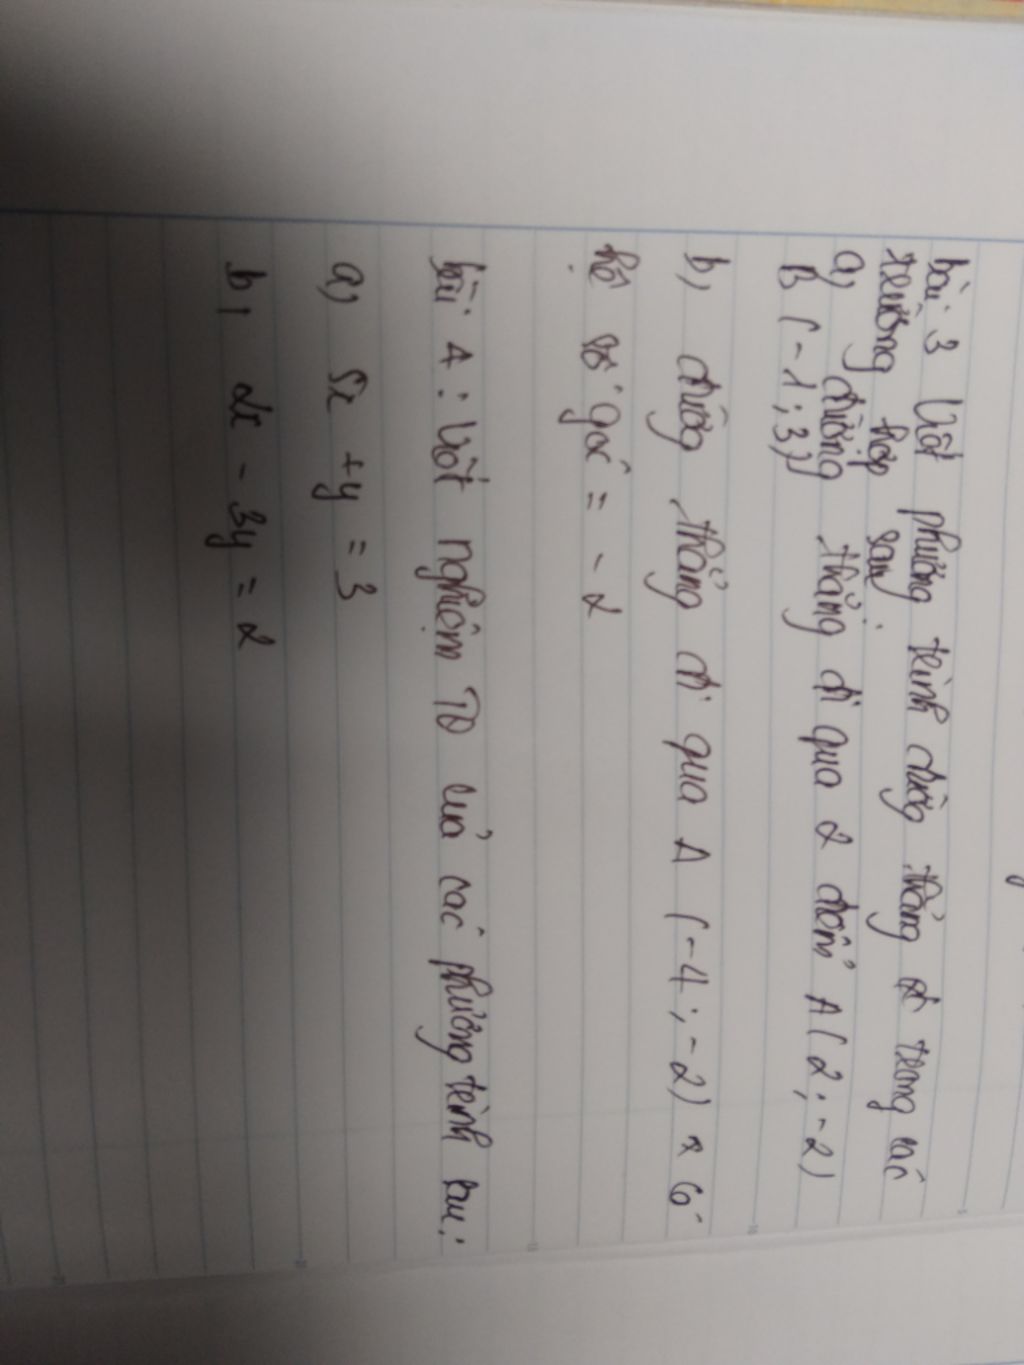 bài 3 Viết phương trình đường thẳng d trong các
trường hợp sau:
a, đường thẳng đi qua 2 điểm A (2; -2)
B (-1; 3)
b, đường thẳng đi qua A (-4; -2) và có
hệ số góc = -2
bài 4: Viết nghiệm TQ của các phương trình sau:
a, 5x + y = 3
b, 2x - 3y = 2